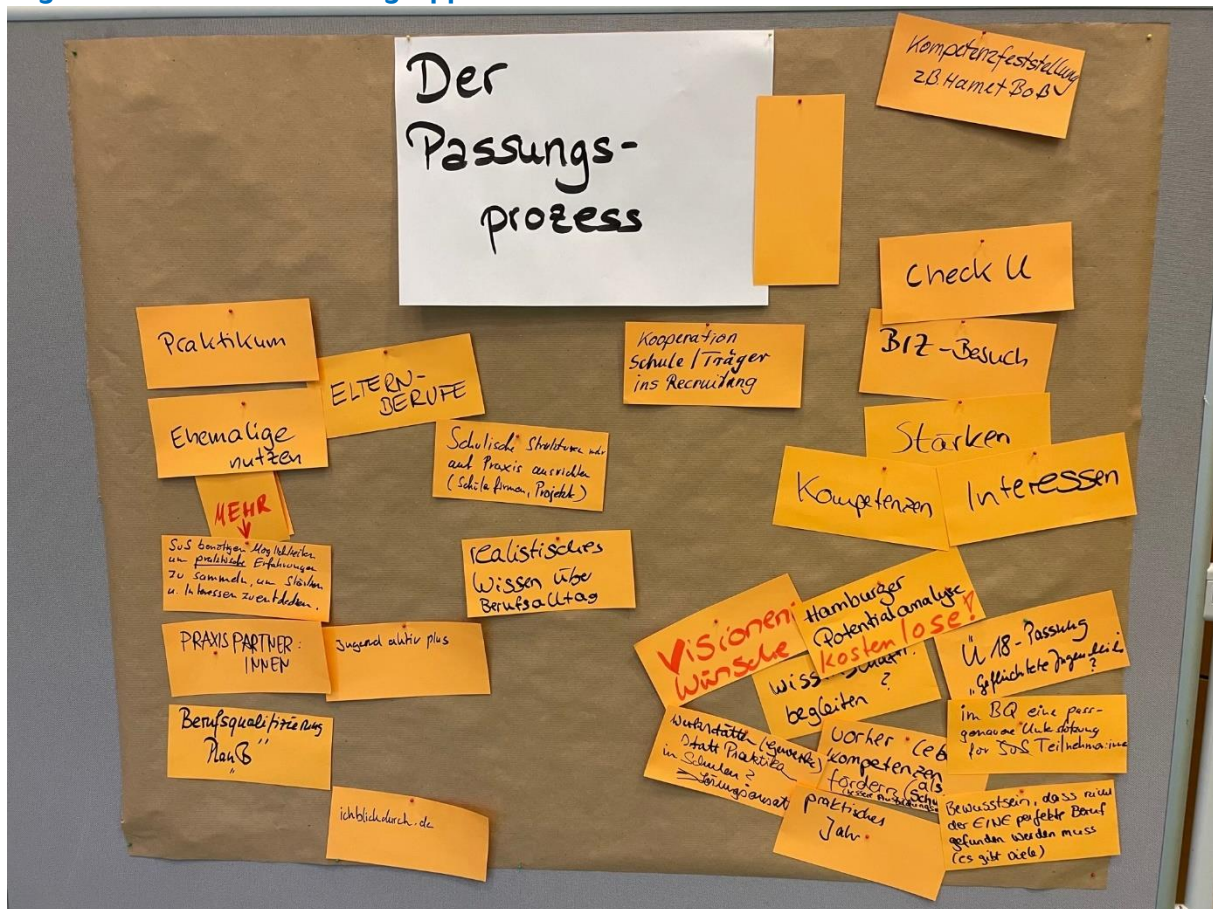 Der
Passungs-
prozess
Kompetenzfeststellung
z.B. Hamet BoB
Check U
BIZ-Besuch
Stärken
Kompetenzen
Interessen
Kooperation
Schule / Träger
ins Recruiting
Praktikum
ELTERN-
BERUFE
Ehemalige
nutzen
Schulische Strukturen mehr
auf Praxis ausrichten
(Schülerfirmen, Projekt)
MEHR
SuS benötigen Möglichkeiten
um praktische Erfahrungen
zu sammeln, um Stärken
u. Interessen zu entdecken.
realistisches
Wissen über
Berufsalltag
PRAXISPARTNER:
INNEN
Jugend aktiv plus
Berufsqualifizierung
"Plan B"
ichblickdurch.de
Visionen
Wünsche
Hamburger
Potentialanalyse
kostenlose!
begleiten
?
Ü 18-Passung
"Geflüchtete Jugendliche
?
im BQ eine pass-
genauere Unterstützung
für SuS Teilnehmer:inne
Werkstätten
statt Praktika
in Schulen?
Lösungsansatz
vorher
Kompetenzen
fördern (als
praktisches
Jahr
Bewusstsein, dass nicht
der EINE perfekte Beruf
gefunden werden muss
(es gibt viele)